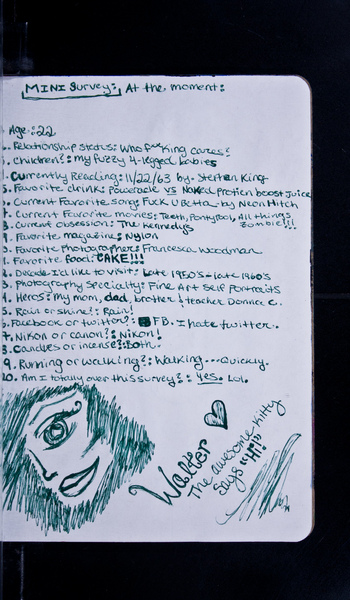 MINI Survey: At the moment:
Age: 22
2. Relationship status: Who f**king cares?
3. Children?: my fuzzy 4-legged babies
4. Currently Reading: 11/22/63 by: Stephen King
5. Favorite drink: Powerade vs Naked protien boost Juice
6. Current Favorite song: Fuck U Betta by Neon Hitch
7. Current Favorite movies: Teeth, Pontypool, All things Zombie!!!
8. Current obsession: The Kennedys
9. Favorite magazine: Nylon
0. Favorite Photographer: Francesca Woodman
1. Favorite food: CAKE!!!
2. Decade I'd like to visit: Late 1950's - late 1960's
3. Photography Specialty: Fine Art Self Portraits
4. Heros: my mom, dad, brother & teacher Donna C.
5. Rain or shine?: Rain!
6. Facebook or twitter?: FB. I hate twitter.
7. Nikon or canon?: Nikon!
8. Candles or incense?: Both.
9. Running or walking?: Walking... Quickly.
10. Am I totally over this survey?: Yes. Lol.
Walter
The awesome kitty
says "Hi!"